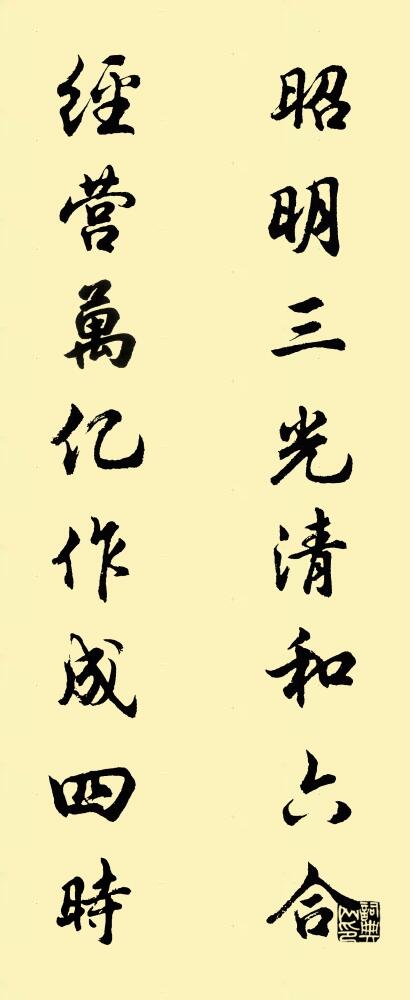 昭明三光清和六合
經营萬亿作成四時